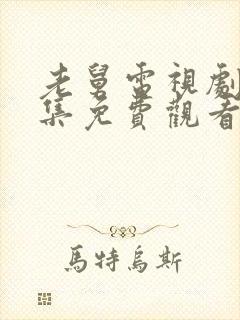 老舅電視劇
集免費觀看
馬特烏斯